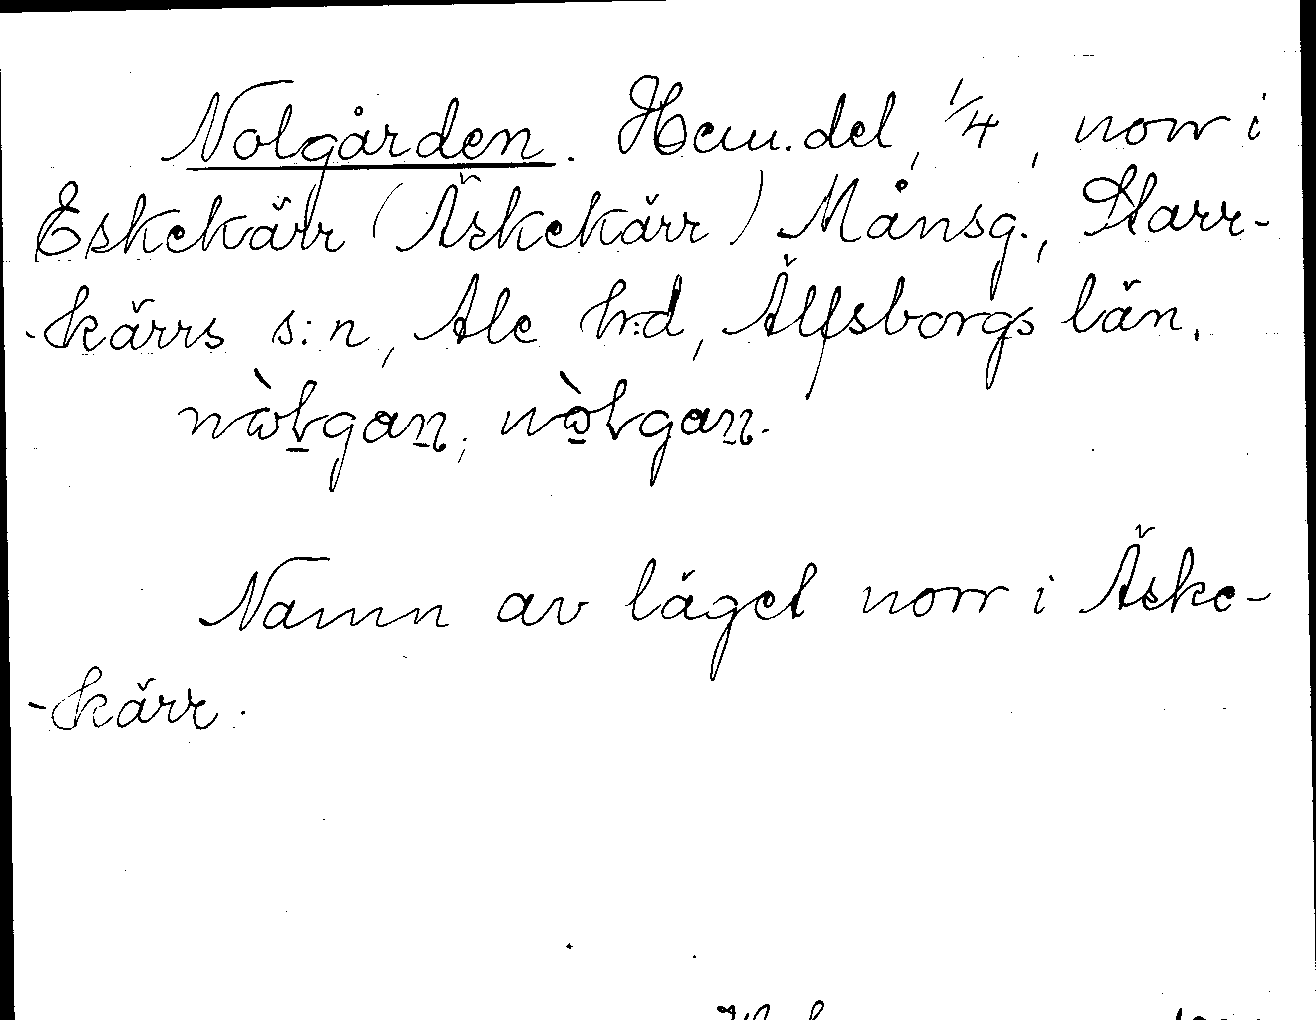 Nolgården. Hem.del, 1/4, norr i
Eskekärr (Äskekärr) Månsg., Starr-
-kärrs s:n, Ale h:d, Älfsborgs län.
nòlgan; nòlgan.
Namn av läget norr i Äske-
-kärr.